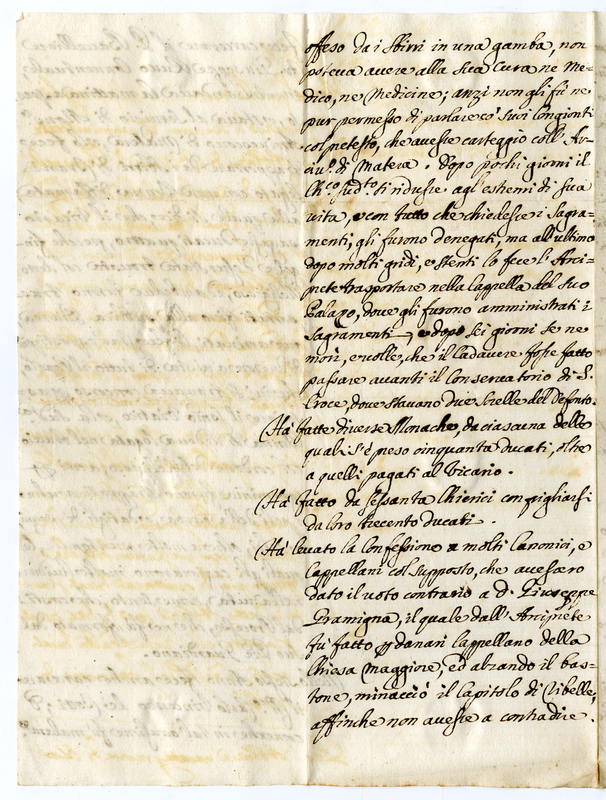 offeso da i sbirri in una gamba, non
poteva avere alla sua cura ne Me-
dico, ne Medicine; anzi non gli fù ne
pur permesso di parlare co' suoi Congionti
col pretesto, che avesse carteggio coll' Ar-
civ.º di Matera. Dopo pochi giorni il
Ch.co sud.to si ridusse agl' estremi di sua
vita, e con tutto che chiedesse i Sagra=
menti, gli furono denegati, ma all' ultimo
dopo molti gridi, e stenti lo fece l' Arci-
prete trasportare nella Cappella del suo
Palazzo, dove gli furono amministrati i
Sagramenti, e dopo sei giorni se ne
morì, e volle, che il Cadavere fosse fatto
passare avanti il Conservatorio di S.
Croce, dove stavano due Sorelle del Defonto.
Hà fatte diverse Monache, da ciascuna delle
quali s' è preso cinquanta ducati, oltre
a quelli pagati al Vicario.
Hà fatto da sessanta Chierici con pigliarsi
da loro trecento ducati.
Hà levato la Confessione a molti Canonici, e
Cappellani col supposto, che avessero
dato il voto contrario a D. Giuseppe
Gramigna, il quale dall' Arciprete
fù fatto p danari Cappellano della
Chiesa Maggiore, ed alzando il bas=
tone, minacciò il Capitolo di ribelle,
affinche non avesse a contradire.